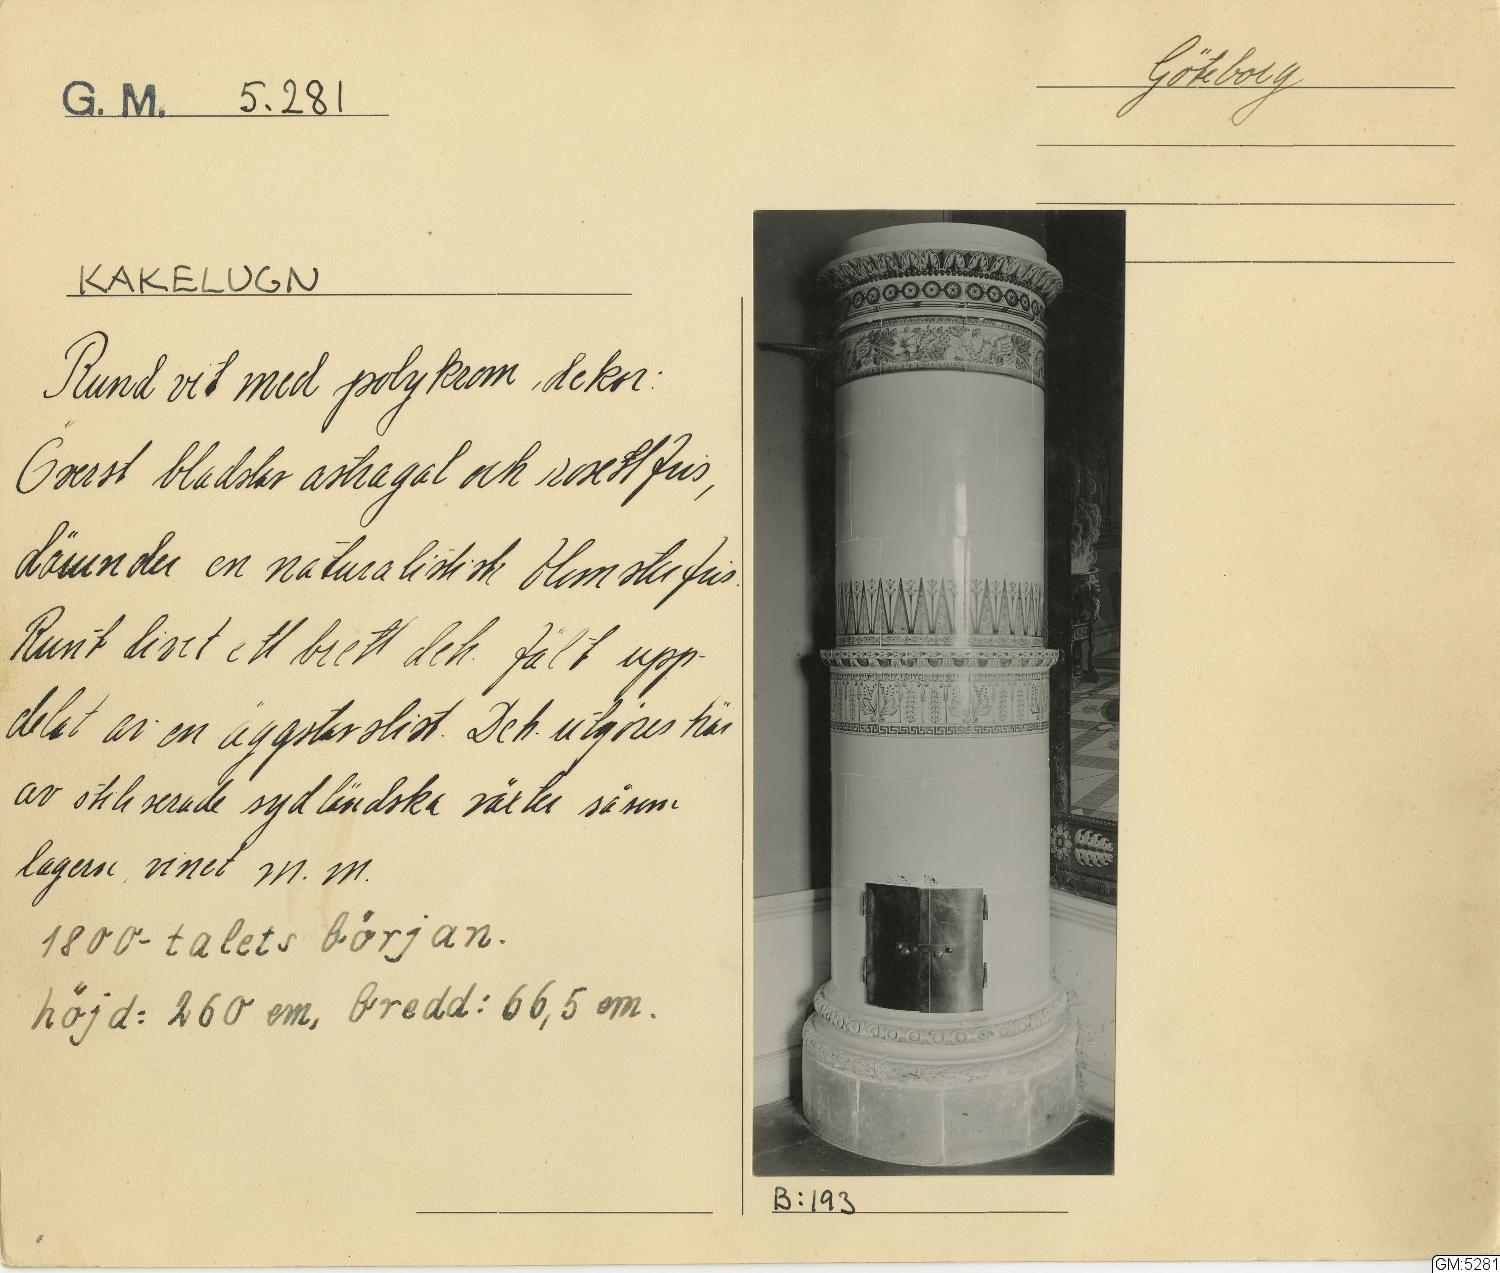 G. M. 5.281
Göteborg
KAKELUGN
Rund vit med polykrom dekor:
Överst bladstav astragal och rosettfris,
därunder en naturalistisk blomsterfris.
Runt livet ett brett dek. fält upp-
delat av en äggstavslist. Dek. utgöres här
av stiliserade sydländska växter såsom
lagern vinet m. m.
1800-talets början.
höjd: 260 cm, bredd: 66,5 cm.
B:193
GM:5281